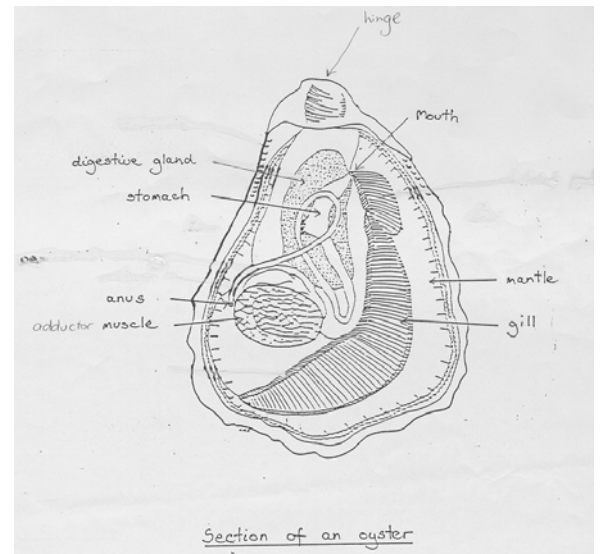 hinge
Mouth
digestive gland
stomach
mantle
anus
adductor muscle
gill
Section of an oyster